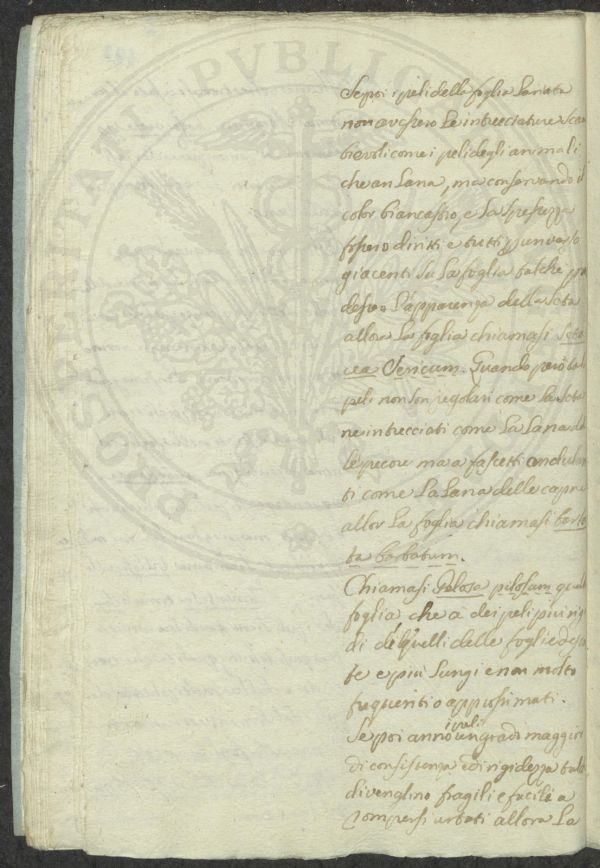 PROSPERITATI PVBLICAE
Se poi i peli della foglia Lanata
non avessero Le intrecciature scam
bievoli come i peli degli animali
che an Lana, ma conservando il
color biancastro, e la spessezza
fossero diritti e tutti per un verso
giacenti su La foglia talche pren
desse L'apparenza della seta
allora La foglia chiamasi Seta
cea Sericum. Quando però tali
peli non son regolari come la seta
ne intrecciati come La Lana del
le pecore ma a fascetti ondula
ti come La Lana delle capre
allor La foglia chiamasi barba
ta barbatum.
Chiamasi Pelosa pilosum quella
foglia che à dei peli piu rigi
di di quelli delle foglie
te e più Lungi e non molto
frequenti o approssimati.
Se poi anno i peli un grado maggior
di consistenza e di rigidezza tale
divenghino fragili e facili a
rompersi urtati allora La